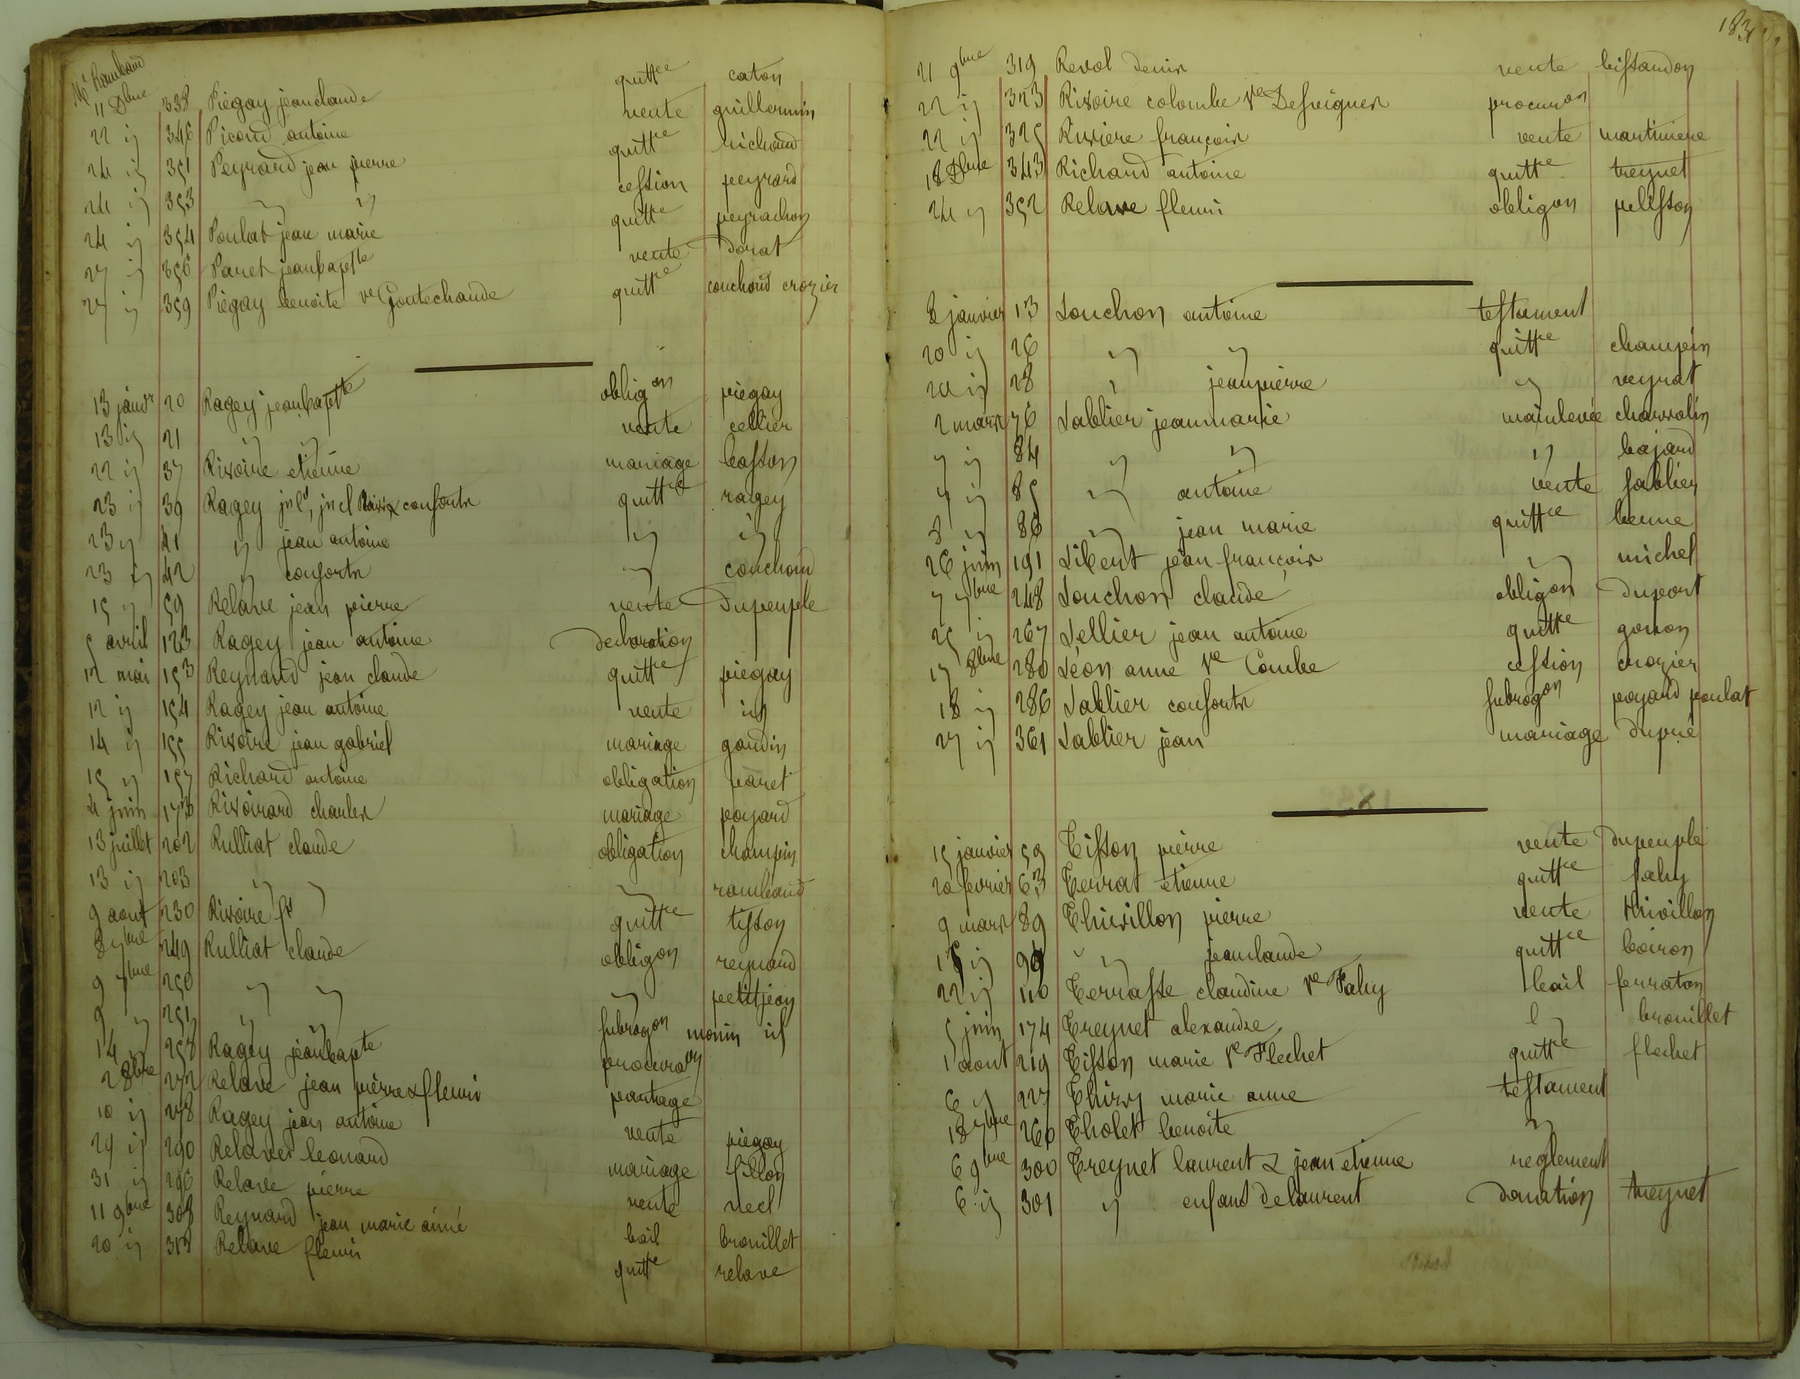 Me Rambaud
11 Dbre 338 Piégay jeanclaude quittce caton
22 id 346 Picond antoine vente guillermin
24 id 351 Peyrard jean pierre quittce richoud
24 id 353 " " cession peyrard
24 id 354 Poulat jean marie quittce peyrachon
27 id 356 Paret jeanbaptte vente Dorat
27 id 359 Piégay benoite ve Goutechaude quittce couchoud crozier
13 janvr 20 Ragey jeanbaptte obligon piégay
13 id 21 " " vente cellier
22 id 37 Rivoire etienne mariage basson
23 id 39 Ragey & consorts quittce ragey
23 " 41 " jean antoine " "
23 " 42 " consorts " couchoud
15 " 59 Relave jean pierre vente Dupeuple
5 avril 123 Ragey jean antoine declaration
12 mai 153 Reynaud jean claude quittce piegay
12 id 154 Ragey jean antoine vente id
14 id 155 Rivoire jean gabriel mariage goudin
15 " 157 Richard antoine obligation paret
4 juin 173 Rivoirard charles mariage poyard
13 juillet 202 Rulliat claude obligation champin
13 id 203 " " " rambaud
9 aout 230 Rivoire fs quittce tisson
8 7bre 249 Rulliat claude obligon reynard
9 7bre 250 " " " petitjean
9 " 251 " " subrogon monin id
14 " 258 Ragey jeanbapte procuraon
2 8bre 272 Relave jean pierre & fleuri partage
10 id 278 Ragey jean antoine vente piegay
29 id 290 Relave leonard mariage fillon
31 id 296 Relave pierre vente
11 9bre 308 Reynard jean marie ainé bail brouillet
20 id 318 Relave fleuri quittce relave
183
21 9bre 319 Revol Denis vente bissardon
22 id 323 Rivoire colombe ve Desvignes procuron
22 id 325 Riviere françois vente martiniere
18 Dbre 343 Richard antoine quittce treynet
24 " 352 Relave fleuri obligon pelisson
8 janvier 13 Souchon antoine testament
20 id 26 " " quittce champin
20 id 28 " jeanpierre " veyrat
2 mars 76 Sablier jeanmarie mainlevée charvolin
7 id 84 " " " bajard
7 " 85 " antoine vente sablier
8 " 86 " jean marie quittce berne
26 juin 191 Sibert jean françois " michel
7 7bre 248 Souchon claude obligon duport
25 id 267 Sellier jean antoine quittce gonon
17 8bre 280 Séon anne ve Combe cession crozier
18 id 286 Sablier consorts subrogon poyard poulat
27 id 361 Sablier jean mariage dupré
15 janvier 59 Tisson pierre vente dupeuple
20 fevrier 63 Terrat etienne quittce fahy
9 mars 89 Thivillon pierre vente thivillon
15 id " " jeanclaude quittce boiron
22 id 110 Terrasse claudine ve Fahy bail ferraton
5 juin 174 Treynet alexandre " brouillet
1 aout 219 Tisson marie ve Flechet quittce flechet
6 " 227 Thiry marie anne testament
18 7bre 260 Tholet benoite "
6 9bre 300 Treynet laurent & jean etienne reglement
6 id 301 " enfans de laurent donation treynet